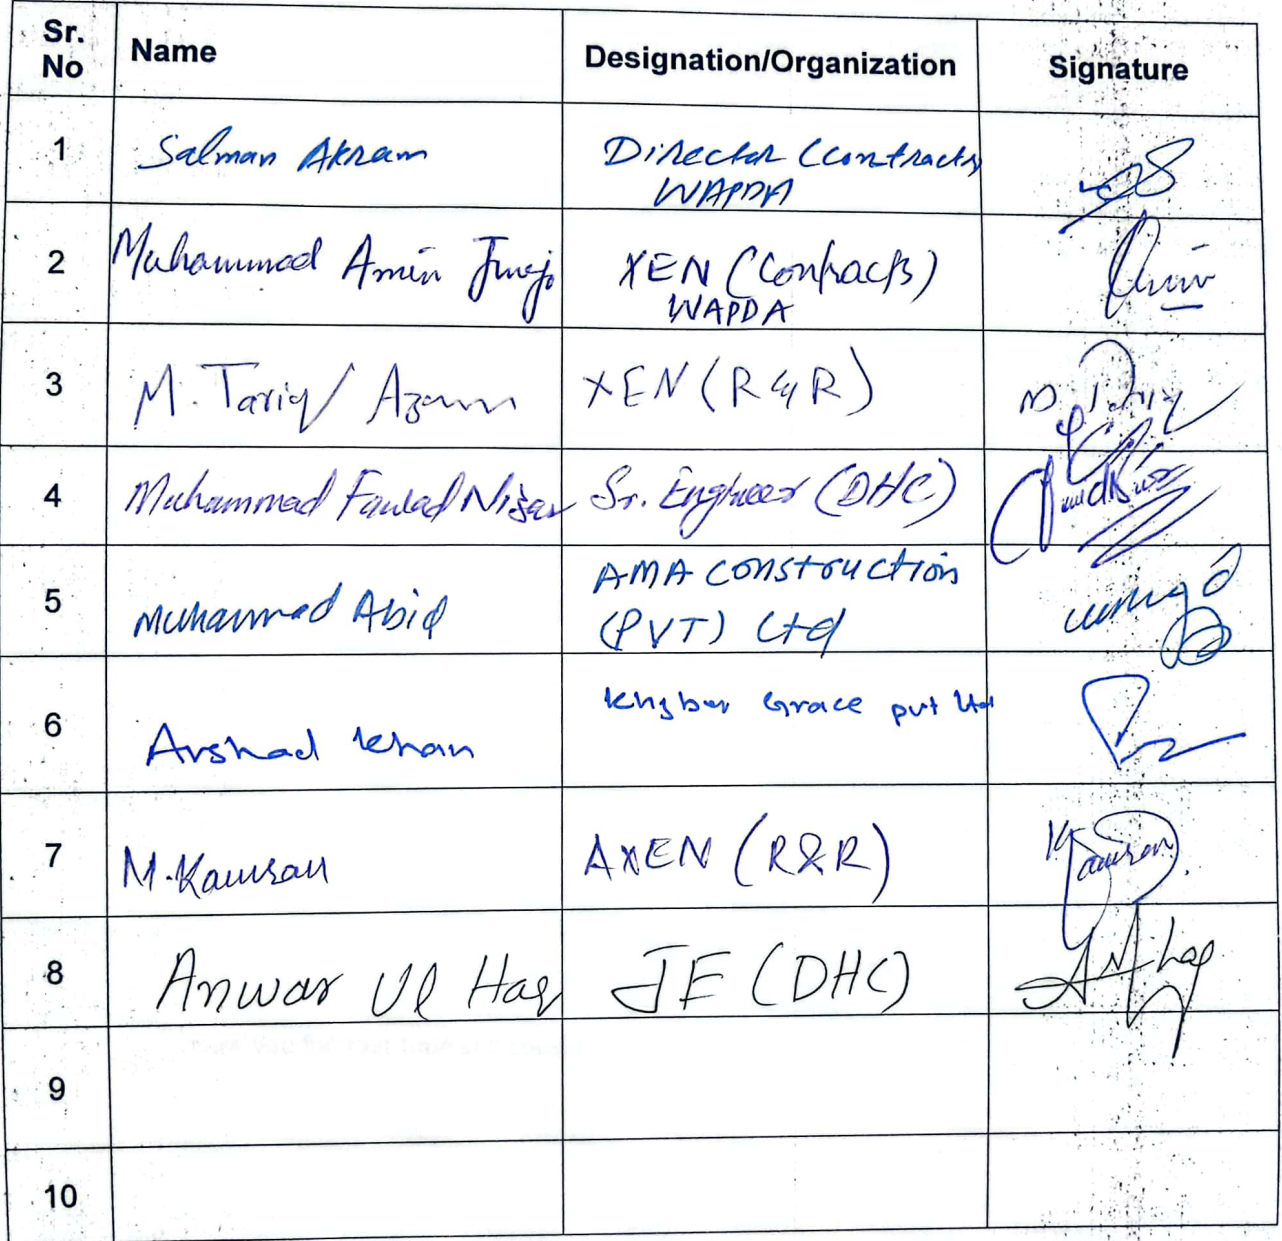 Sr. No Name Designation/Organization Signature
1 Salman Akram Director (Contracts)
WAPDA
2 Muhammad Amin Junejo XEN (Contracts)
WAPDA
3 M. Tariq Azam XEN (R & R) M. Tariq
4 Muhammad Fawad Nizar Sr. Engineer (DHC)
5 Muhammad Abid AMA Construction
(PVT) Ltd
6 Arshad Khan Khyber Grace pvt Ltd
7 M. Kamran AXEN (R&R) Kamran
8 Anwar Ul Haq JE (DHC)
9
10